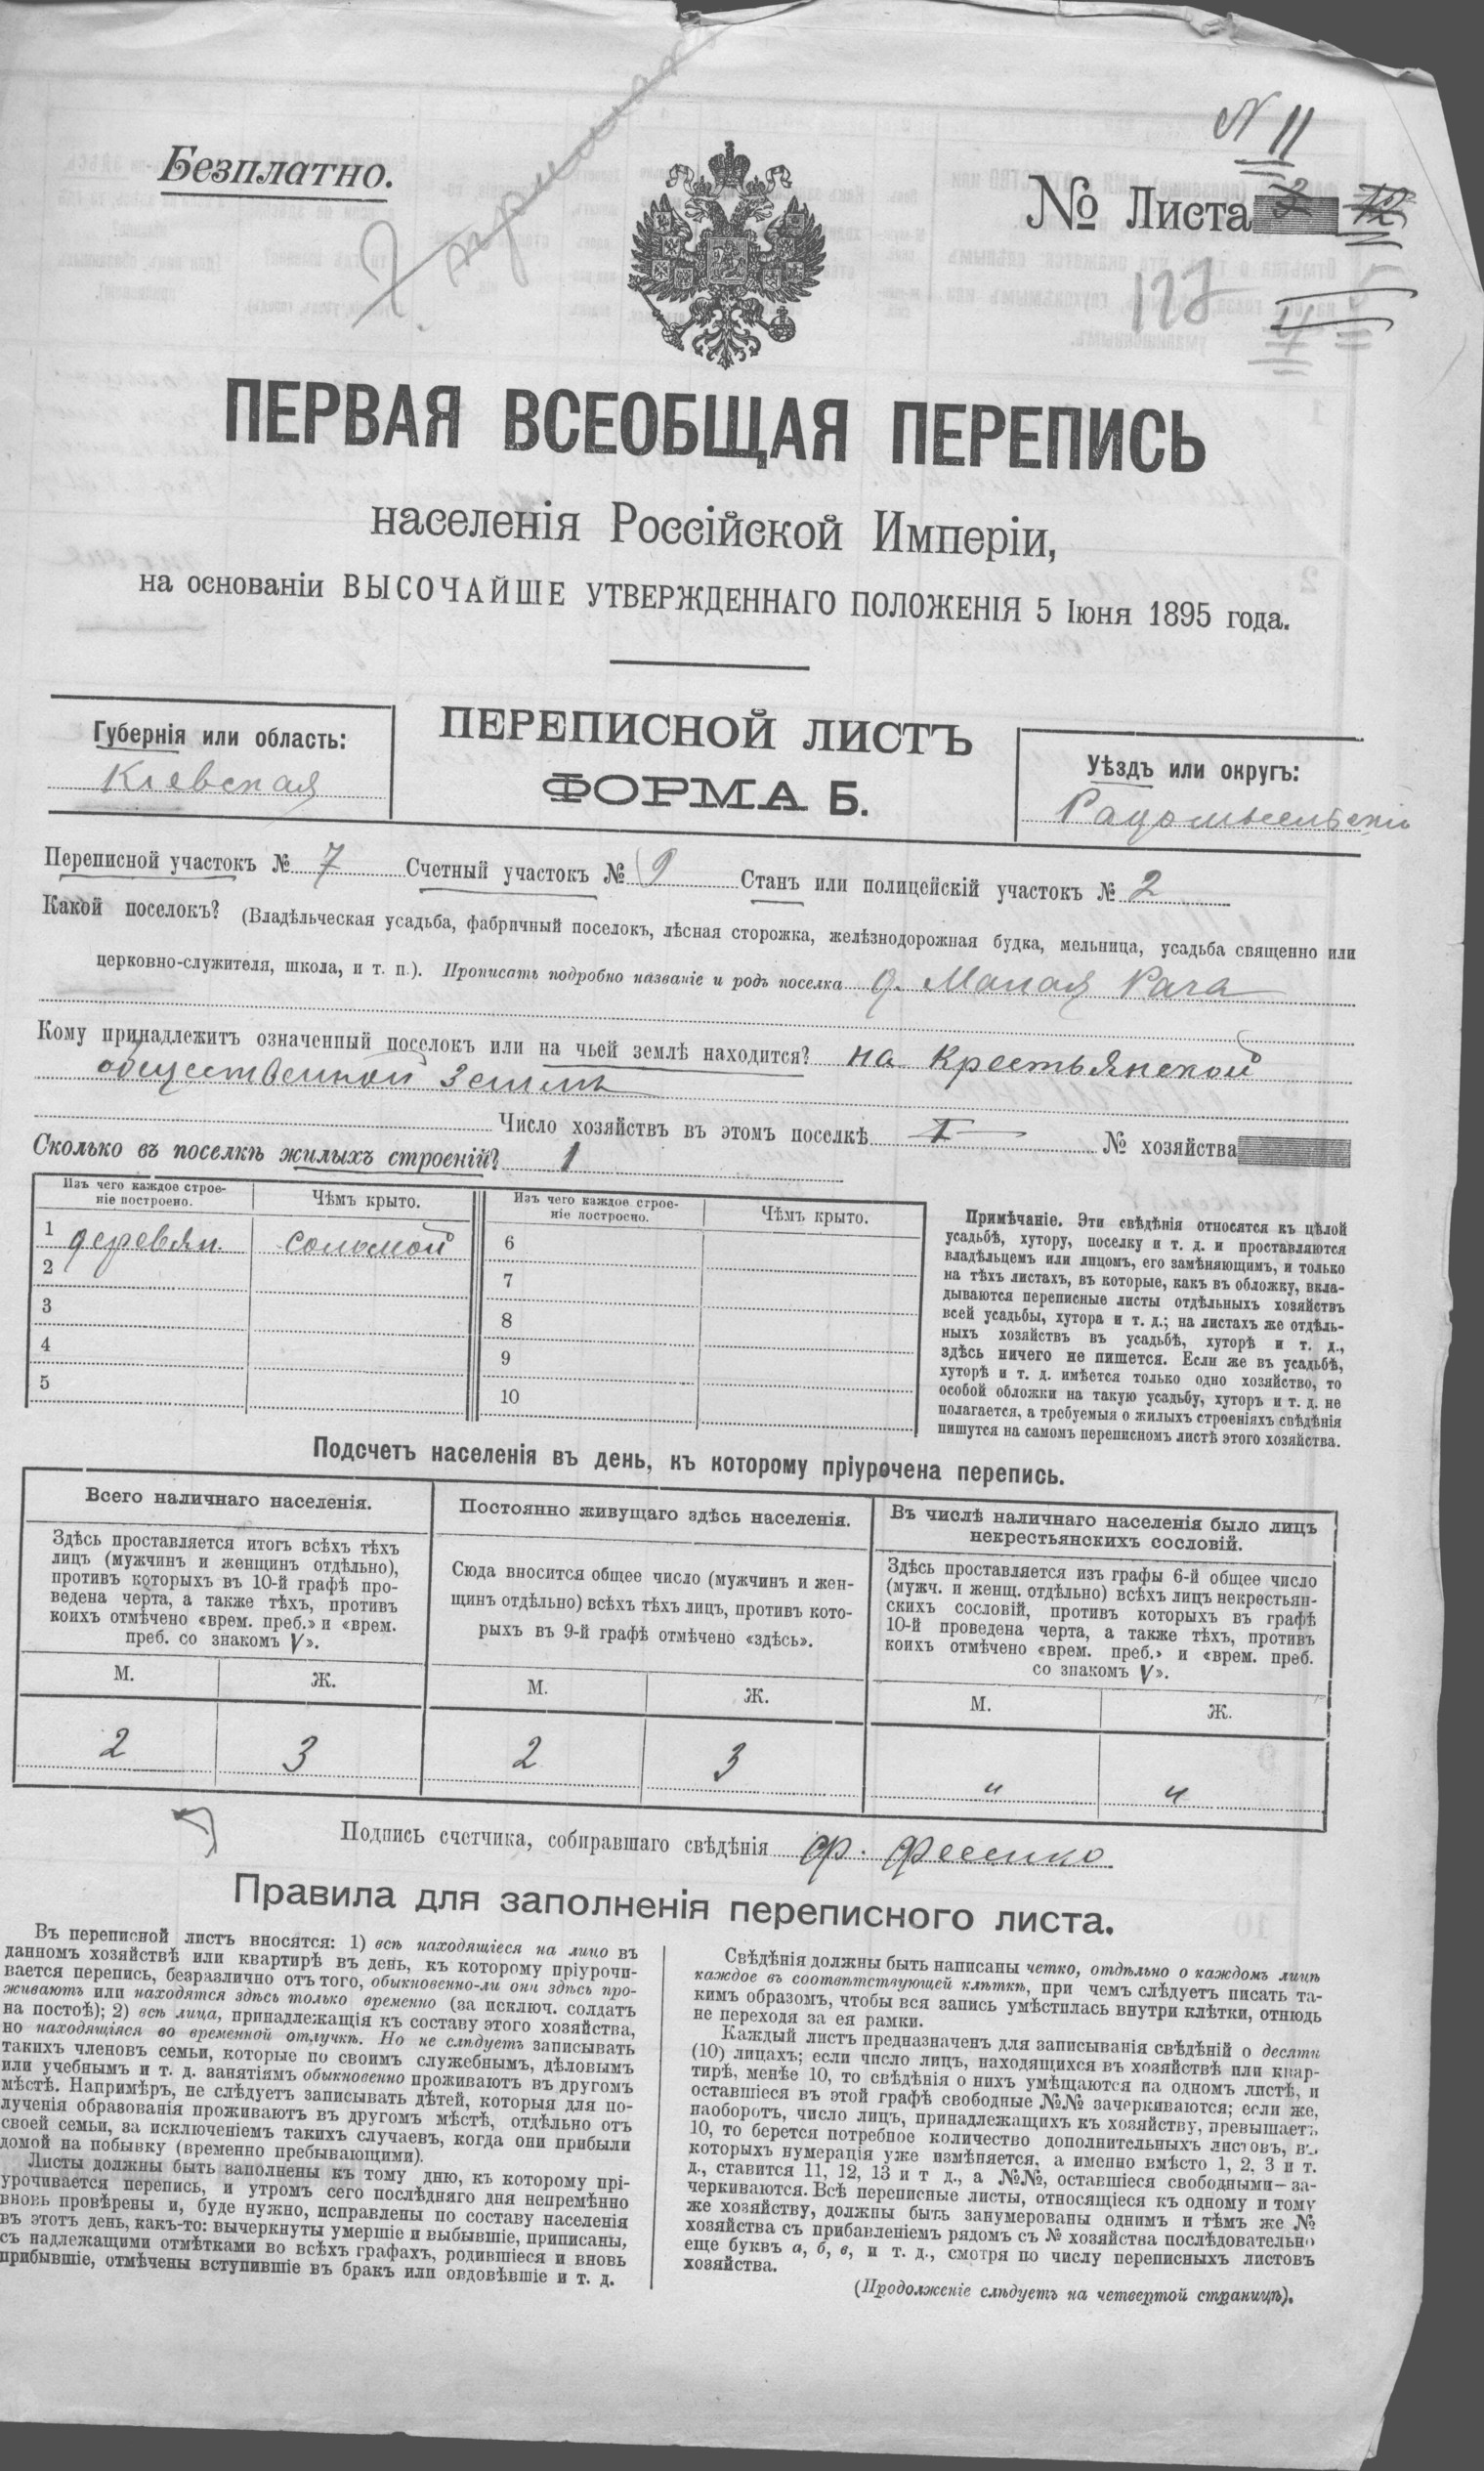 № 11
Безплатно.
№ Листа
127
ПЕРВАЯ ВСЕОБЩАЯ ПЕРЕПИСЬ
населенія Россійской Имперіи,
на основаніи ВЫСОЧАЙШЕ УТВЕРЖДЕННАГО ПОЛОЖЕНІЯ 5 Іюня 1895 года.
Губернія или область:
Кіевская
ПЕРЕПИСНОЙ ЛИСТЪ
ФОРМА Б.
Уѣздъ или округъ:
Радомысльскій
Переписной участокъ № 7 Счетный участокъ № 9 Станъ или полицейскій участокъ № 2
Какой поселокъ? (Владѣльческая усадьба, фабричный поселокъ, лѣсная сторожка, желѣзнодорожная будка, мельница, усадьба священно или
церковно-служителя, школа, и т. п.). Прописать подробно названіе и родъ поселка д. Малая Рача
Кому принадлежитъ означенный поселокъ или на чьей землѣ находится? на крестьянской
общественной землѣ
Число хозяйствъ въ этомъ поселкѣ I № хозяйства
Сколько въ поселкѣ жилыхъ строеній? 1
Изъ чего каждое строе-
ніе построено.
Чѣмъ крыто.
Изъ чего каждое строе-
ніе построено.
Чѣмъ крыто.
1 деревян. соломой 6
2 7
3 8
4 9
5 10
Примѣчаніе. Эти свѣдѣнія относятся къ цѣлой
усадьбѣ, хутору, поселку и т. д. и проставляются
владѣльцемъ или лицомъ, его замѣняющимъ, и только
на тѣхъ листахъ, въ которые, какъ въ обложку, вкла-
дываются переписные листы отдѣльныхъ хозяйствъ
всей усадьбы, хутора и т. д.; на листахъ же отдѣль-
ныхъ хозяйствъ въ усадьбѣ, хуторѣ и т. д.,
здѣсь ничего не пишется. Если же въ усадьбѣ,
хуторѣ и т. д. имѣется только одно хозяйство, то
особой обложки на такую усадьбу, хуторъ и т. д. не
полагается, а требуемыя о жилыхъ строеніяхъ свѣдѣнія
пишутся на самомъ переписномъ листѣ этого хозяйства.
Подсчетъ населенія въ день, къ которому пріурочена перепись.
Всего наличнаго населенія.
Здѣсь проставляется итогъ всѣхъ тѣхъ
лицъ (мужчинъ и женщинъ отдѣльно),
противъ которыхъ въ 10-й графѣ про-
ведена черта, а также тѣхъ, противъ
коихъ отмѣчено «врем. преб.» и «врем.
преб. со знакомъ V».
М. Ж.
2 3
Постоянно живущаго здѣсь населенія.
Сюда вносится общее число (мужчинъ и жен-
щинъ отдѣльно) всѣхъ тѣхъ лицъ, противъ кото-
рыхъ въ 9-й графѣ отмѣчено «здѣсь».
М. Ж.
2 3
Въ числѣ наличнаго населенія было лицъ
некрестьянскихъ сословій.
Здѣсь проставляется изъ графы 6-й общее число
(мужч. и женщ. отдѣльно) всѣхъ лицъ некрестьян-
скихъ сословій, противъ которыхъ въ графѣ
10-й проведена черта, а также тѣхъ, противъ
коихъ отмѣчено «врем. преб.» и «врем. преб.
со знакомъ V».
М. Ж.
" "
Подпись счетчика, собиравшаго свѣдѣнія
Правила для заполненія переписного листа.
Въ переписной листъ вносятся: 1) всѣ находящіеся на лицо въ
данномъ хозяйствѣ или квартирѣ въ день, къ которому пріурочи-
вается перепись, безразлично отъ того, обыкновенно-ли они здѣсь про-
живаютъ или находятся здѣсь только временно (за исключ. солдатъ
на постоѣ); 2) всѣ лица, принадлежащія къ составу этого хозяйства,
но находящіяся во временной отлучкѣ. Но не слѣдуетъ записывать
такихъ членовъ семьи, которые по своимъ служебнымъ, дѣловымъ
или учебнымъ и т. д. занятіямъ обыкновенно проживаютъ въ другомъ
мѣстѣ. Напримѣръ, не слѣдуетъ записывать дѣтей, которыя для по-
лученія образованія проживаютъ въ другомъ мѣстѣ, отдѣльно отъ
своей семьи, за исключеніемъ такихъ случаевъ, когда они прибыли
домой на побывку (временно пребывающими).
Листы должны быть заполнены къ тому дню, къ которому прі-
урочивается перепись, и утромъ сего послѣдняго дня непремѣнно
вновь провѣрены и, буде нужно, исправлены по составу населенія
въ этотъ день, какъ-то: вычеркнуты умершіе и выбывшіе, приписаны,
съ надлежащими отмѣтками во всѣхъ графахъ, родившіеся и вновь
прибывшіе, отмѣчены вступившіе въ бракъ или овдовѣвшіе и т. д.
Свѣдѣнія должны быть написаны четко, отдѣльно о каждомъ лицѣ
каждое въ соотвѣтствующей клѣткѣ, при чемъ слѣдуетъ писать та-
кимъ образомъ, чтобы вся запись умѣстилась внутри клѣтки, отнюдь
не переходя за ея рамки.
Каждый листъ предназначенъ для записыванія свѣдѣній о десяти
(10) лицахъ; если число лицъ, находящихся въ хозяйствѣ или квар-
тирѣ, менѣе 10, то свѣдѣнія о нихъ умѣщаются на одномъ листѣ, и
оставшіеся въ этой графѣ свободные №№ зачеркиваются; если же,
наоборотъ, число лицъ, принадлежащихъ къ хозяйству, превышаетъ
10, то берется потребное количество дополнительныхъ листовъ, въ
которыхъ нумерація уже измѣняется, а именно вмѣсто 1, 2, 3 и т.
д., ставится 11, 12, 13 и т д., а №№, оставшіеся свободными—за-
черкиваются. Всѣ переписные листы, относящіеся къ одному и тому
же хозяйству, должны быть занумерованы однимъ и тѣмъ же №
хозяйства съ прибавленіемъ рядомъ съ № хозяйства послѣдовательно
еще буквъ а, б, в, и т. д., смотря по числу переписныхъ листовъ
хозяйства.
(Продолженіе слѣдуетъ на четвертой страницѣ).